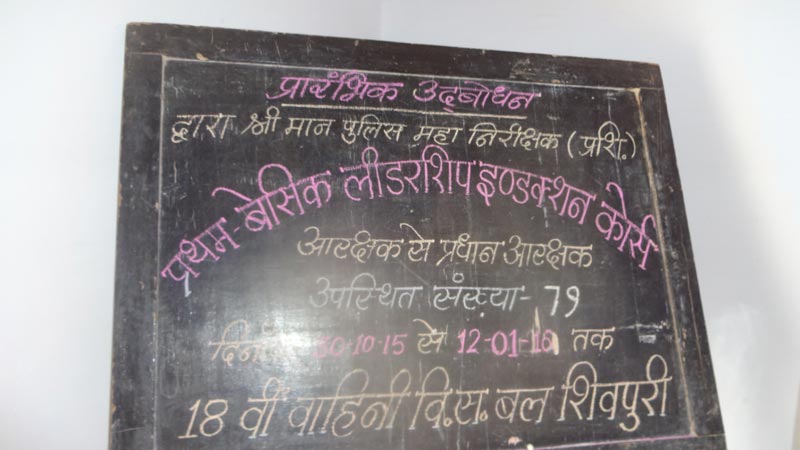 प्रारंभिक उद्‌बोधन
द्वारा श्री मान पुलिस महा निरीक्षक (प्रशि.)
प्रथम-बेसिक लीडरशिप इण्डक्शन कोर्स
आरक्षक से प्रधान आरक्षक
उपस्थित संख्या-79
30-10-15 से 12-01-16 तक
18 वीं वाहिनी वि.स. बल शिवपुरी